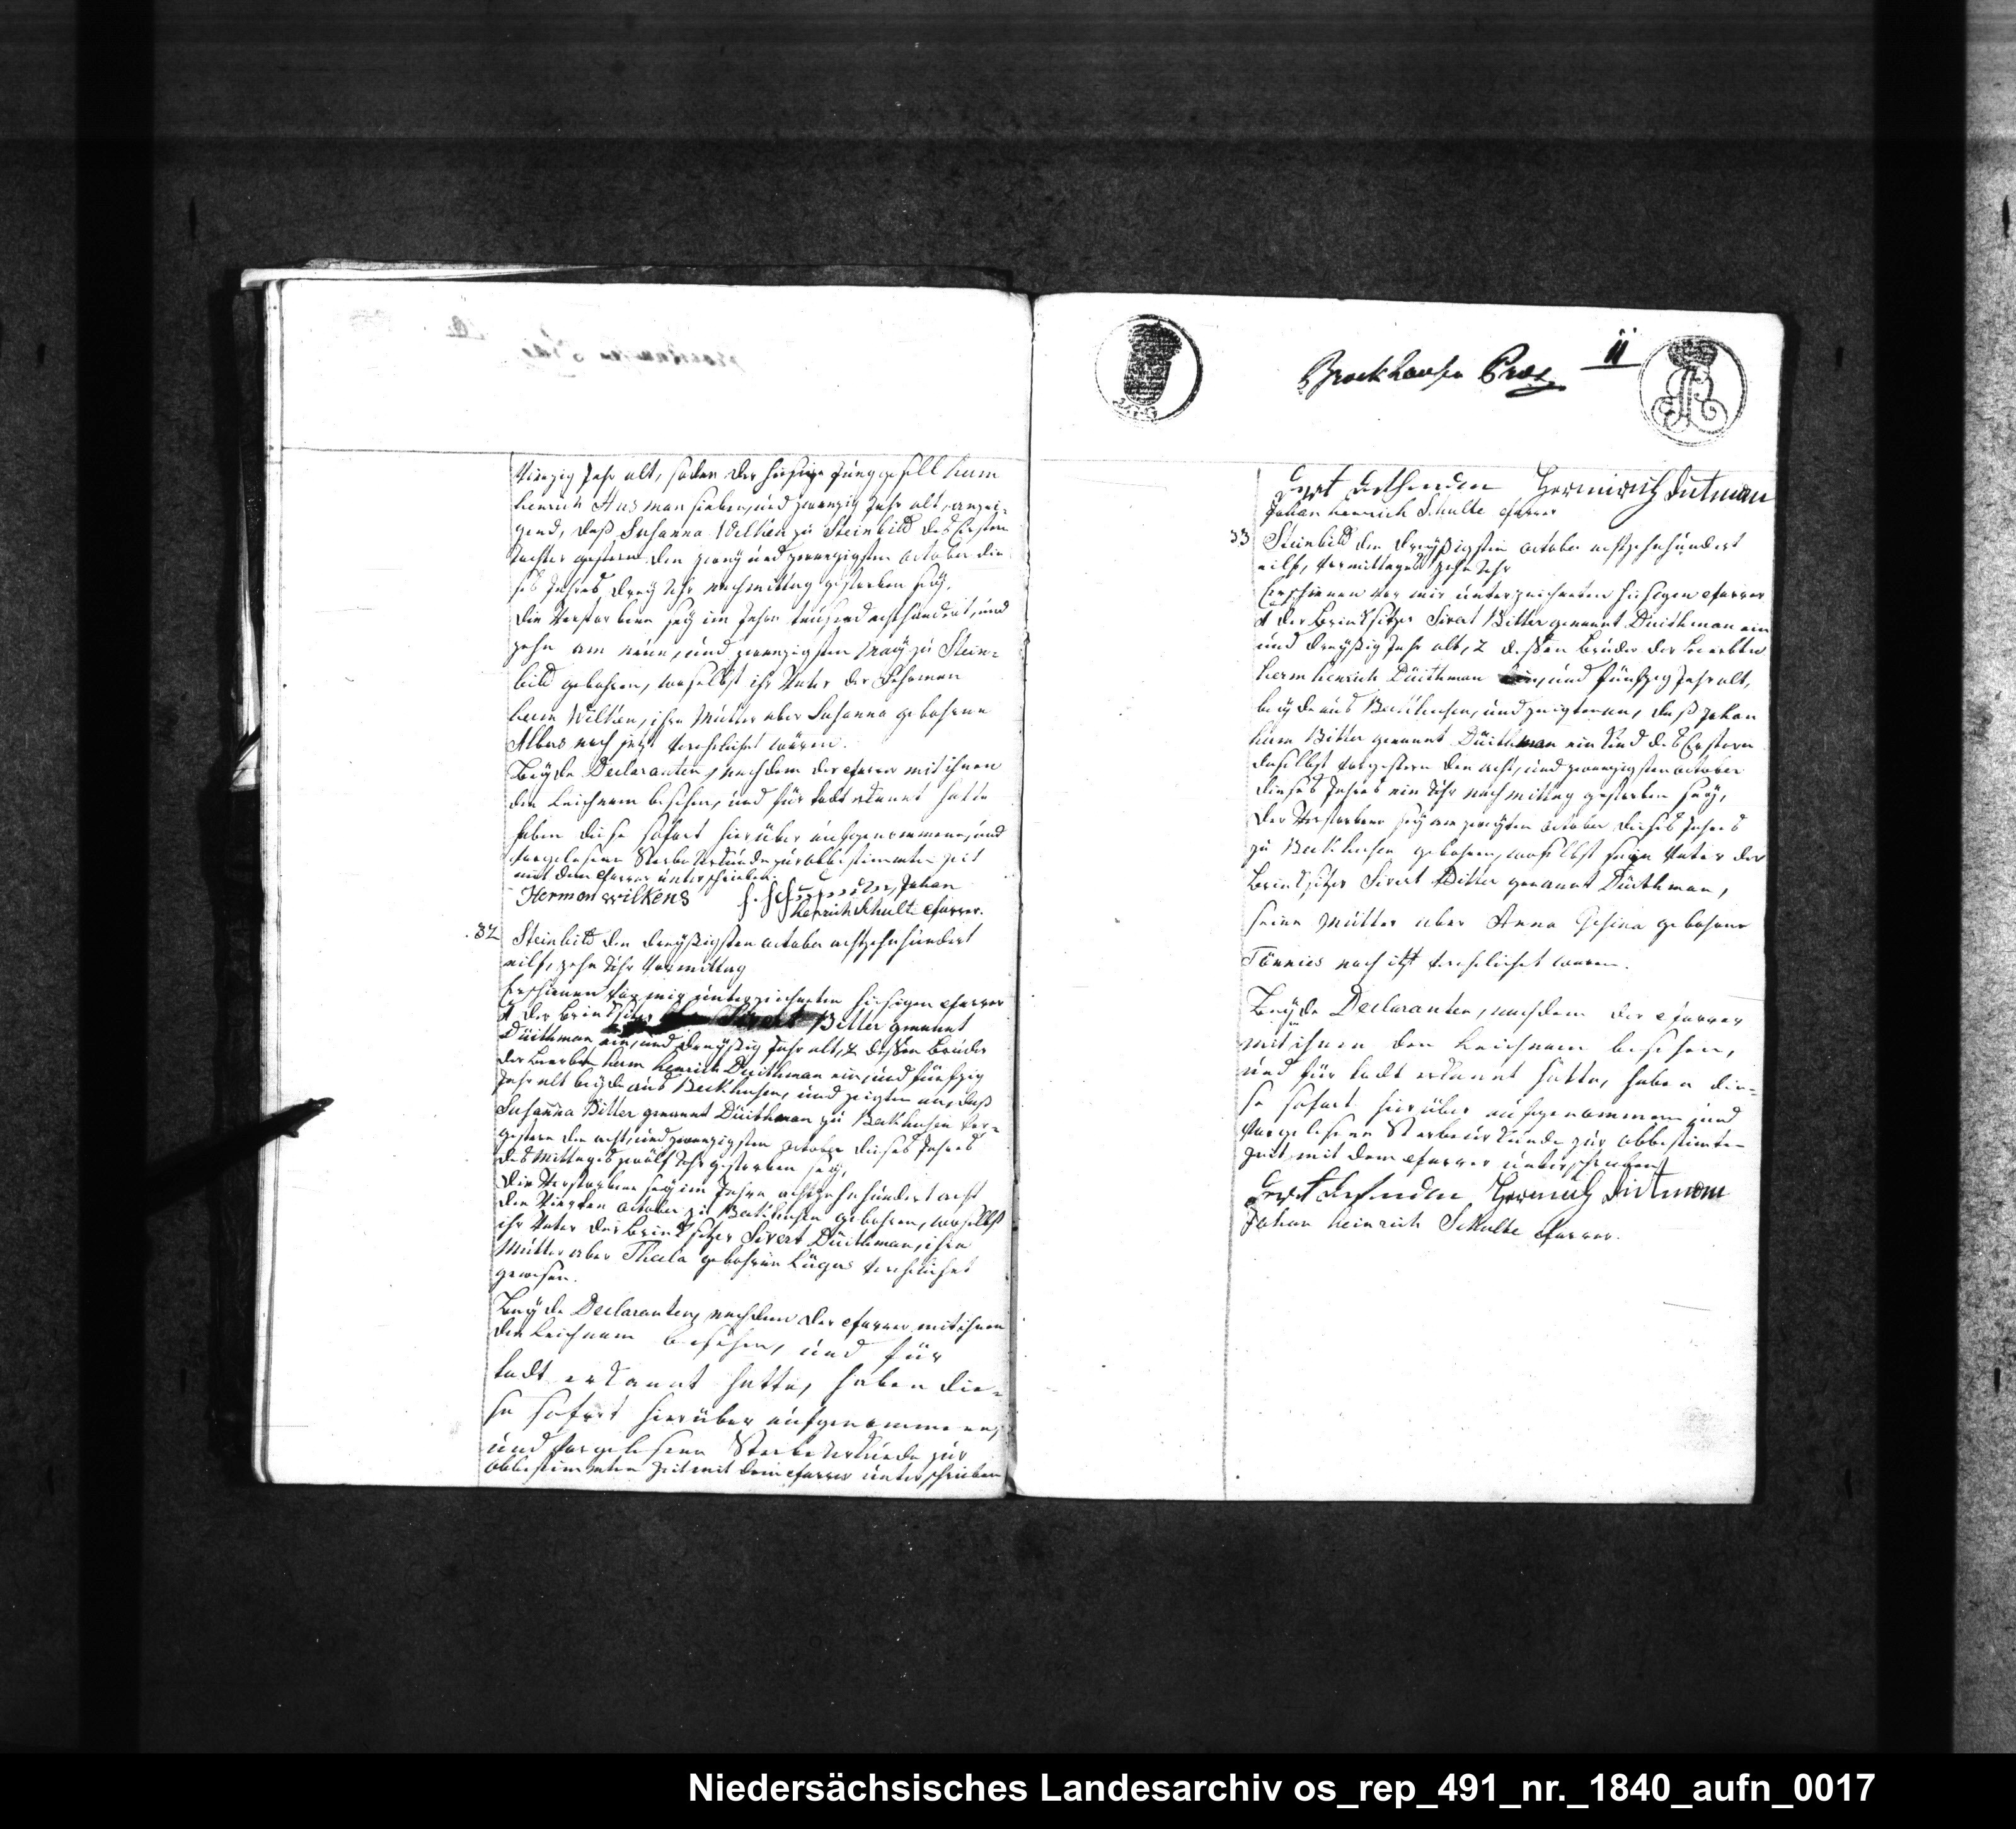 Vierzig Jahr alt, sodan der hiesige Junggesell Herm
Henrich Husman sieben, und zwanzig Jahr alt, anzei-
gend, daß Susanna Wilken zu Steinbild des Ersten
Tochter gestern den zwey und zwanzigsten october die-
ses Jahres, drey Uhr nachmittag gestorben sey.
Die Verstorbene sey im Jahre tausend achthundert, und
zehn am neun, und zwanzigsten May zu Stein-
bild gebohren, woselbst ihr Vater der
Herm Wilken, ihre Mutter aber Susanna gebohrne
Albers noch jetzt verehelichet wären.
Beyde Declaranten, nachdem der Pfarrer mit ihnen
den Leichnam besehen, und für todt erkannt hatte
haben diese sofort hierüber aufgenommene, und
vorgelesene Sterbe Urkunde zur obbestimmten Zeit
mit dem Pfarrer unterschrieben.
Herman Wilkens Johan
Henrich Schulte Pfarrer.
32 Steinbild den dreyßigsten october achtzehnhundert
eilf, zehn Uhr Vormittag
Erschienen vor mir unterzeichneten hiesigen Pfarrer
1 der Brinksitzer Sivert Bitter genannt
Düithman ein, und dreyßig Jahr alt, 2 dessen Bruder
der Beerbte Herm Henrich Düithman ein, und fünfzig
Jahr alt beyde aus Beckhusen, und zeigten an, daß
Susanna Bitter genannt Düithman zu Beckhusen vor-
gestern den acht, und zwanzigsten october dieses Jahres
des Mittages zwölf Uhr gestorben sey,
Die Verstorbene sey im Jahre achtzehnhundert acht
den Vierten october zu Beckhusen gebohren, woselbst
ihr Vater der Brinksitzer Sivert Düithman, ihre
Mutter aber Theela gebohrne Lügers verehelichet
gewesen.
Beyde Declaranten, nachdem der Pfarrer mit ihnen
den Leichnam besehen, und für
todt erkannt hatte, haben die-
se sofort hierüber aufgenommene,
und vorgelesene Sterbe Urkunde zur
obbestimmten Zeit mit dem Pfarrer unterschrieben
Brockhausen Präs. 11
Johan Henrich Schulte Pfarrer
33 Steinbild den dreyßigsten october achtzehnhundert
eilf, Vormittages zehn Uhr
Erschienen vor mir unterzeichneten hiesigen Pfarrer
1 der Brinksitzer Sivert Bitter genannt Düithman ein
und dreyßig Jahr alt, 2 dessen Bruder der Beerbte
Herm Henrich Düithman ein, und fünfzig Jahr alt,
beyde aus Beckhusen, und zeigten an, daß Johan
Herm Bitter genannt Düithman ein Kind des Ersteren
daselbst vorgestern den acht, und zwanzigsten october
dieses Jahres ein Uhr nachmittag gestorben sey,
der Verstorbene sey am zweyten october dieses Jahres
zu Beckhusen gebohren, woselbst sein Vater der
Brinksitzer Sivert Bitter genannt Düithman,
seine Mutter aber Anna Gesina gebohrne
Tönnies noch itzt verehelichet waren.
Beyde Declaranten, nachdem der Pfarrer
mit ihnen den Leichnam besehen,
und für todt erkannt hatte, haben die-
se sofort hierüber aufgenommene und
vorgelesene Sterbeurkunde zur obbestimten
Zeit mit dem Pfarrer unterschrieben
Johan Heinrich Schulte Pfarrer.
Niedersächsisches Landesarchiv os_rep_491_nr._1840_aufn_0017